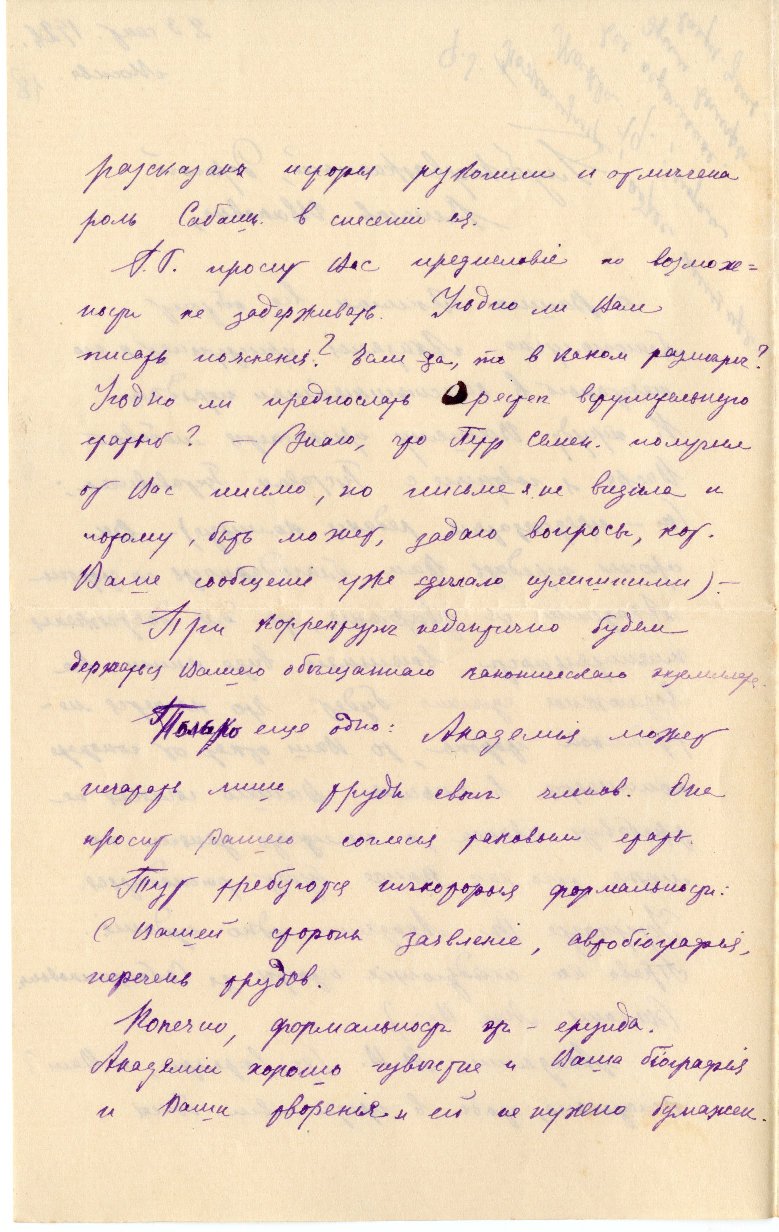 разсказана исторія рукописи и отмѣчена
роль Сабашн. в спасеніи ея.
П.Г. просит Вас предисловіе по возмож=
ности не задерживать. Угодно ли Вам
писать поясненія? Если да, то в каком размѣрѣ?
Угодно ли предпослать очерк вступительную
статью? — (Знаю, что Петр Семен. получил
от Вас письмо, но письма я не видѣла и
потому, быть может, задаю вопросы, кот.
Ваше сообщеніе уже сдѣлало излишними) —
При корректурѣ педантично будем
держаться Вашего обѣщаннаго каноническаго экземпляра.
Только еще одно: Академія может
печатать лишь труды своих членов. Она
просит Вашего согласія таковым стать.
Тут требуются нѣкоторыя формальности:
С Вашей стороны заявленіе, автобіографія,
перечень трудов.
Конечно, формальность эта – ерунда.
Академіи хорошо извѣстна и Ваша біографія
и Ваши творенія и ей не нужно бумажек.